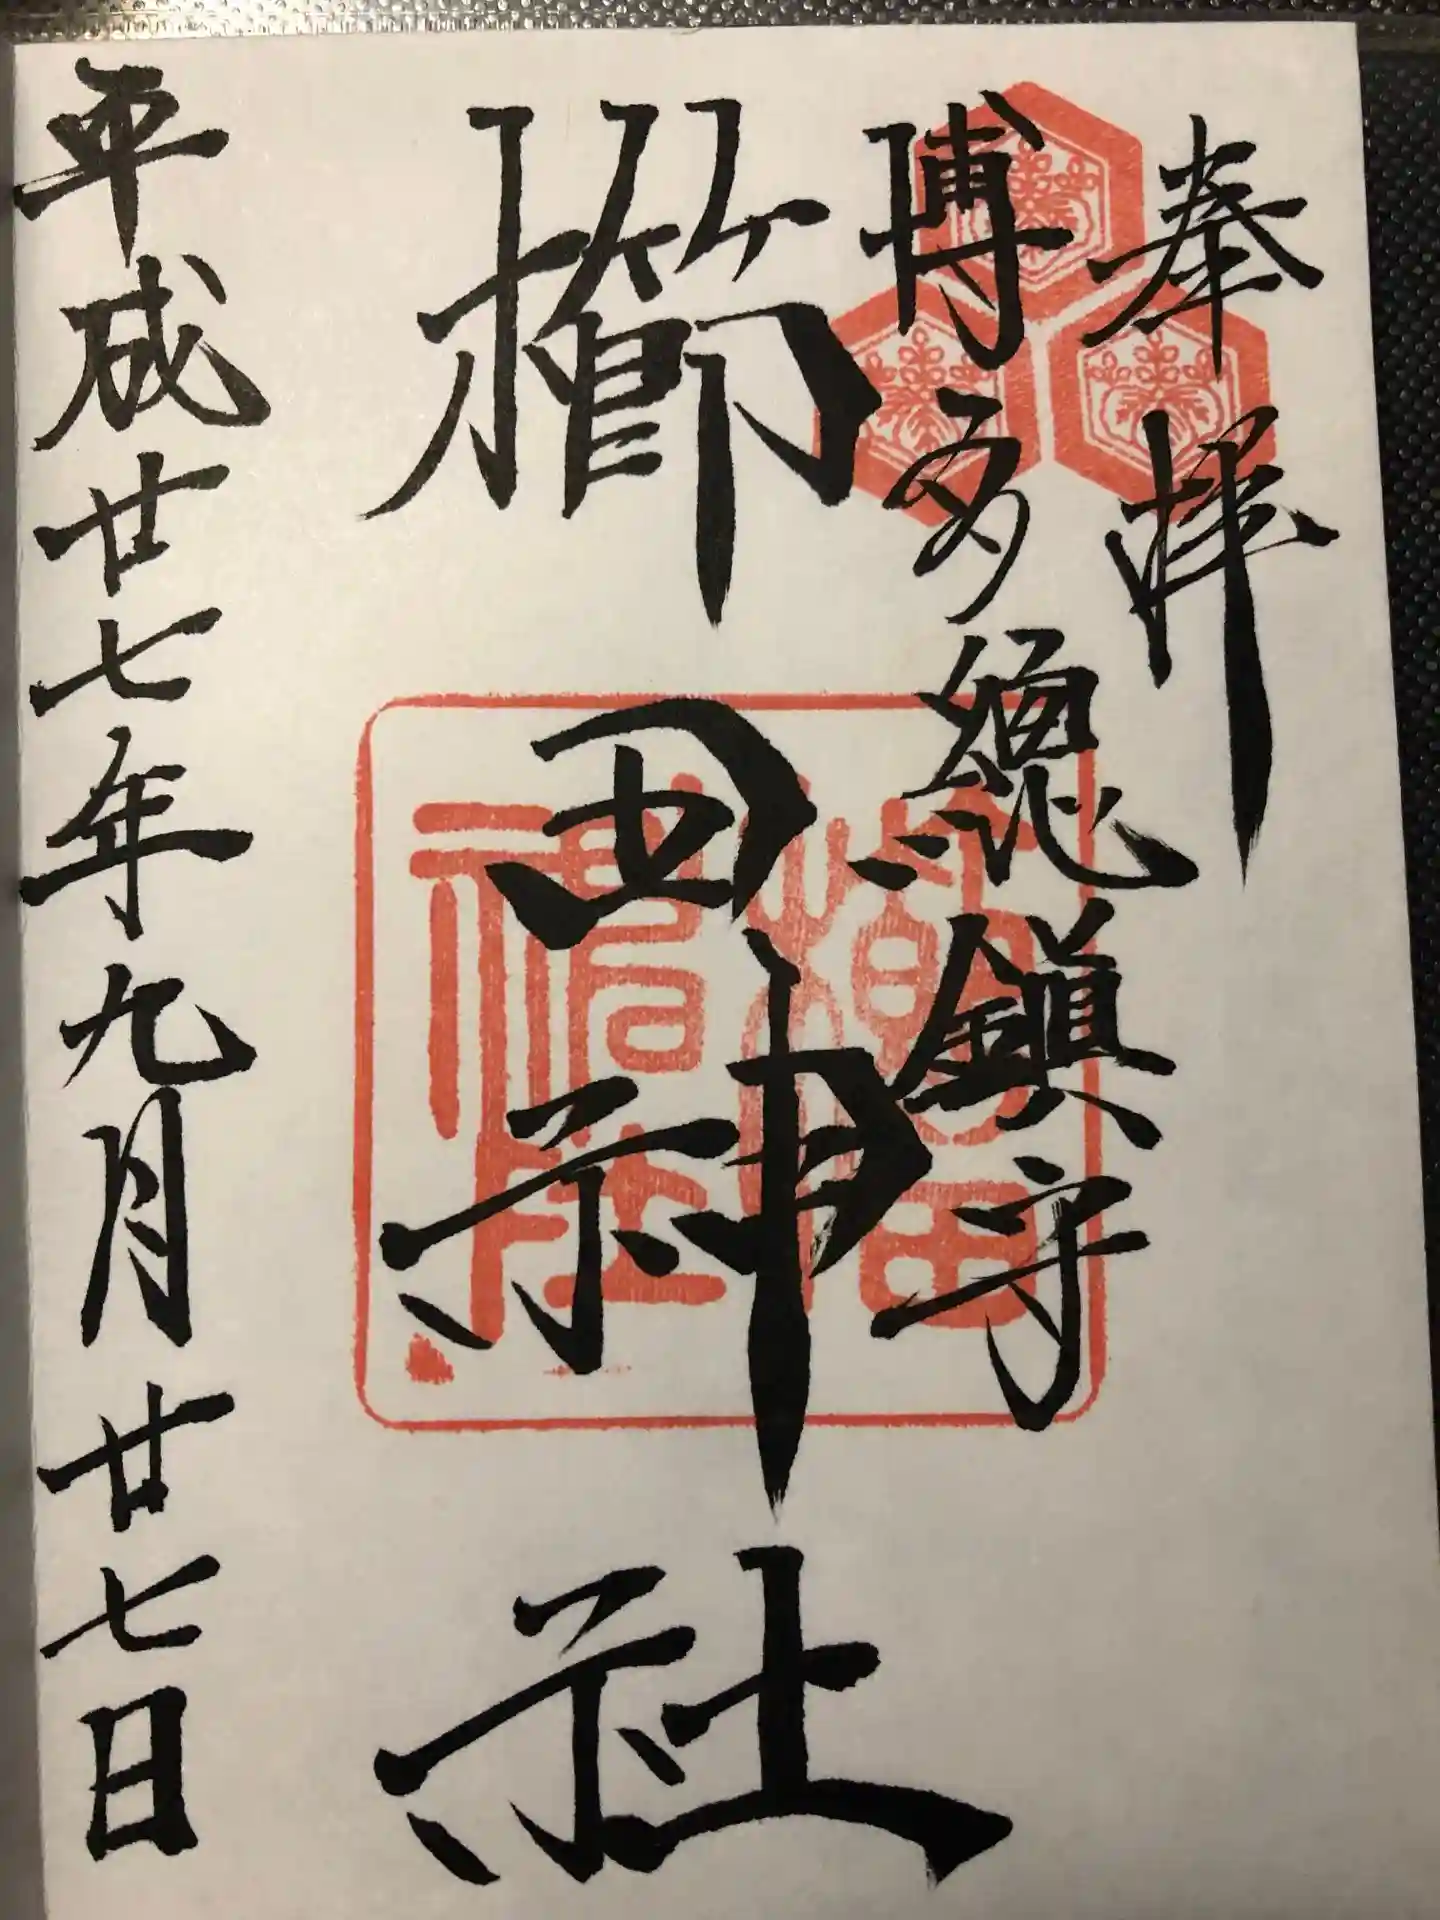 奉拝
博多總鎮守
櫛田神社
櫛田
神社
平成廿七年九月廿七日